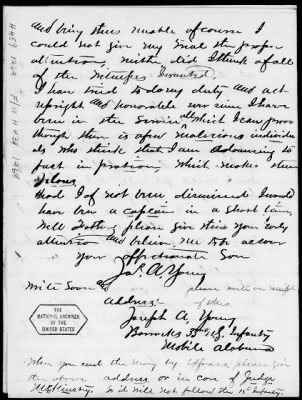 and being thus unable of course I
could not give my trial the proper
attention, neither did I think of all
of the Witnesses I wanted.
I have tried to do my duty and act
upright and honorable ever since I have
been in the Service all which I can prove
though there is a few malicious individu
als who think that I am advancing to
fast in position, which makes them
Jelous
Had I of not been dismissed I would
have been a captain in a short time,
Well Father please give this your early
attention and believe me to be as ever
your affectionate Son
Jos. A Young
Write Soon and
please write on
Address:-
Joseph A Young
Barracks 15th U.S. Infantry
Mobile Alabama
When you send the money by Express please give
the above address or in care of Judge
McKinstry. So it will not follow the 15th Infantry.
THE
NATIONAL ARCHIVES
OF THE
UNITED STATES